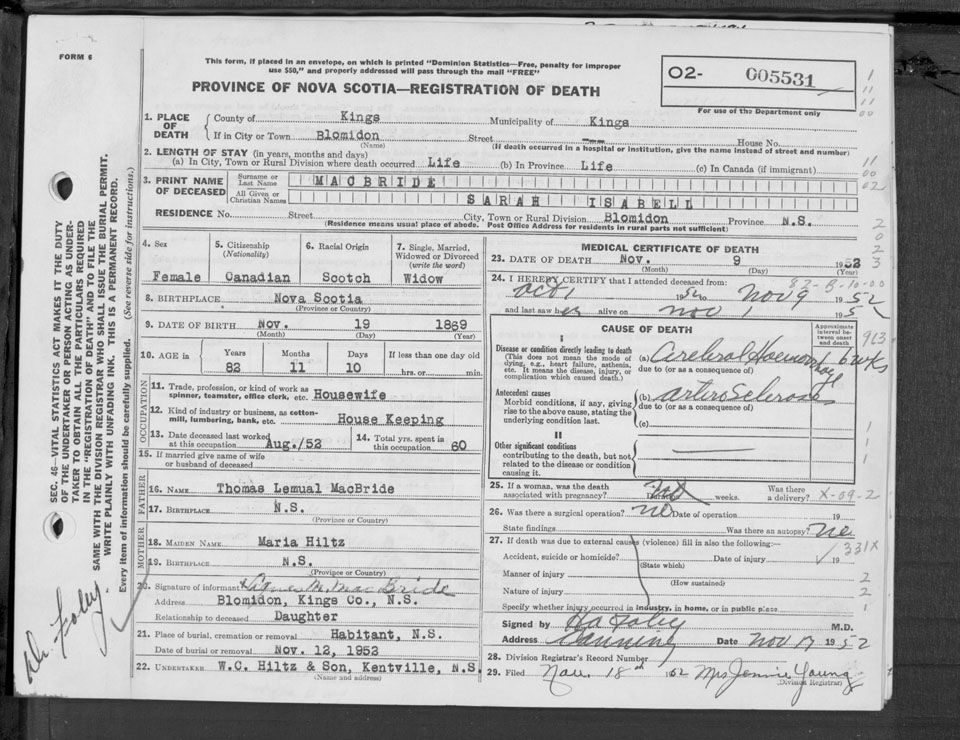 FORM 6
This form, if placed in an envelope, on which is printed "Dominion Statistics—Free, penalty for improper
use $50," and properly addressed will pass through the mail "FREE"
PROVINCE OF NOVA SCOTIA—REGISTRATION OF DEATH
O2- 005531
For use of the Department only
1. PLACE OF DEATH
County of Kings Municipality of Kings
If in City or Town Blomidon Street House No.
(Name) (If death occurred in a hospital or institution, give the name instead of street and number)
2. LENGTH OF STAY (in years, months and days)
(a) In City, Town or Rural Division where death occurred Life (b) In Province Life (c) In Canada (if immigrant)
3. PRINT NAME OF DECEASED
Surname or Last Name MACBRIDE
All Given or Christian Names SARAH ISABELL
RESIDENCE No. Street City, Town or Rural Division Blomidon Province N.S.
(Residence means usual place of abode. Post Office Address for residents in rural parts not sufficient)
4. Sex Female
5. Citizenship (Nationality) Canadian
6. Racial Origin Scotch
7. Single, Married, Widowed or Divorced (write the word) Widow
8. BIRTHPLACE Nova Scotia
(Province or Country)
9. DATE OF BIRTH Nov. 19 1869
(Month) (Day) (Year)
10. AGE in Years Months Days If less than one day old
82 11 10 hrs. or min.
OCCUPATION
11. Trade, profession, or kind of work as
spinner, teamster, office clerk, etc. Housewife
12. Kind of industry or business, as cotton-
mill, lumbering, bank, etc. House Keeping
13. Date deceased last worked at this occupation Aug./52
14. Total yrs. spent in this occupation 60
15. If married give name of wife
or husband of deceased
FATHER
16. NAME Thomas Lemual MacBride
17. BIRTHPLACE N.S.
(Province or Country)
MOTHER
18. MAIDEN NAME Maria Hiltz
19. BIRTHPLACE N.S.
(Province or Country)
20. Signature of informant M. MacBride
Address Blomidon, Kings Co., N.S.
Relationship to deceased Daughter
21. Place of burial, cremation or removal Habitant, N.S.
Date of burial or removal Nov. 12, 1952
22. UNDERTAKER W.C. Hiltz & Son, Kentville, N.S.
(Name and address)
MEDICAL CERTIFICATE OF DEATH
23. DATE OF DEATH Nov. 9 1952
(Month) (Day) (Year)
82-8-10-00
24. I HEREBY CERTIFY that I attended deceased from:
Oct 1 1952 to Nov 9 1952
and last saw her alive on Nov 1 195
CAUSE OF DEATH
Approximate interval between onset and death
I
Disease or condition directly leading to death
(This does not mean the mode of
dying, e.g., heart failure, asthenia,
etc. It means the disease, injury, or
complication which caused death.)
(a) Cerebral Haemorrhage 6 wks
due to (or as a consequence of)
Antecedent causes
Morbid conditions, if any, giving
rise to the above cause, stating the
underlying condition last.
(b) arterio Sclerosis
due to (or as a consequence of)
(c)
II
Other significant conditions
contributing to the death, but not
related to the disease or condition
causing it.
25. If a woman, was the death
associated with pregnancy? Duration weeks. Was there a delivery? X-09-2
26. Was there a surgical operation? no Date of operation 19
State findings Was there an autopsy? no
27. If death was due to external causes (violence) fill in also the following:—
331X
Accident, suicide or homicide? Date of injury 19
(State which)
Manner of injury
(How sustained)
Nature of injury
Specify whether injury occurred in industry, in home, or in public place
Signed by M.D.
Address Canning Date Nov 17 1952
28. Division Registrar's Record Number
29. Filed Nov. 18th 1952 Mrs Jennie Young
(Division Registrar)
SEC. 46—VITAL STATISTICS ACT MAKES IT THE DUTY
OF THE UNDERTAKER OR PERSON ACTING AS UNDER-
TAKER TO OBTAIN ALL THE PARTICULARS REQUIRED
IN THE "REGISTRATION OF DEATH" AND TO FILE THE
SAME WITH THE DIVISION REGISTRAR WHO SHALL ISSUE THE BURIAL PERMIT.
WRITE PLAINLY WITH UNFADING INK. THIS IS A PERMANENT RECORD.
Every item of information should be carefully supplied. (See reverse side for instructions.)
Dr. Foley